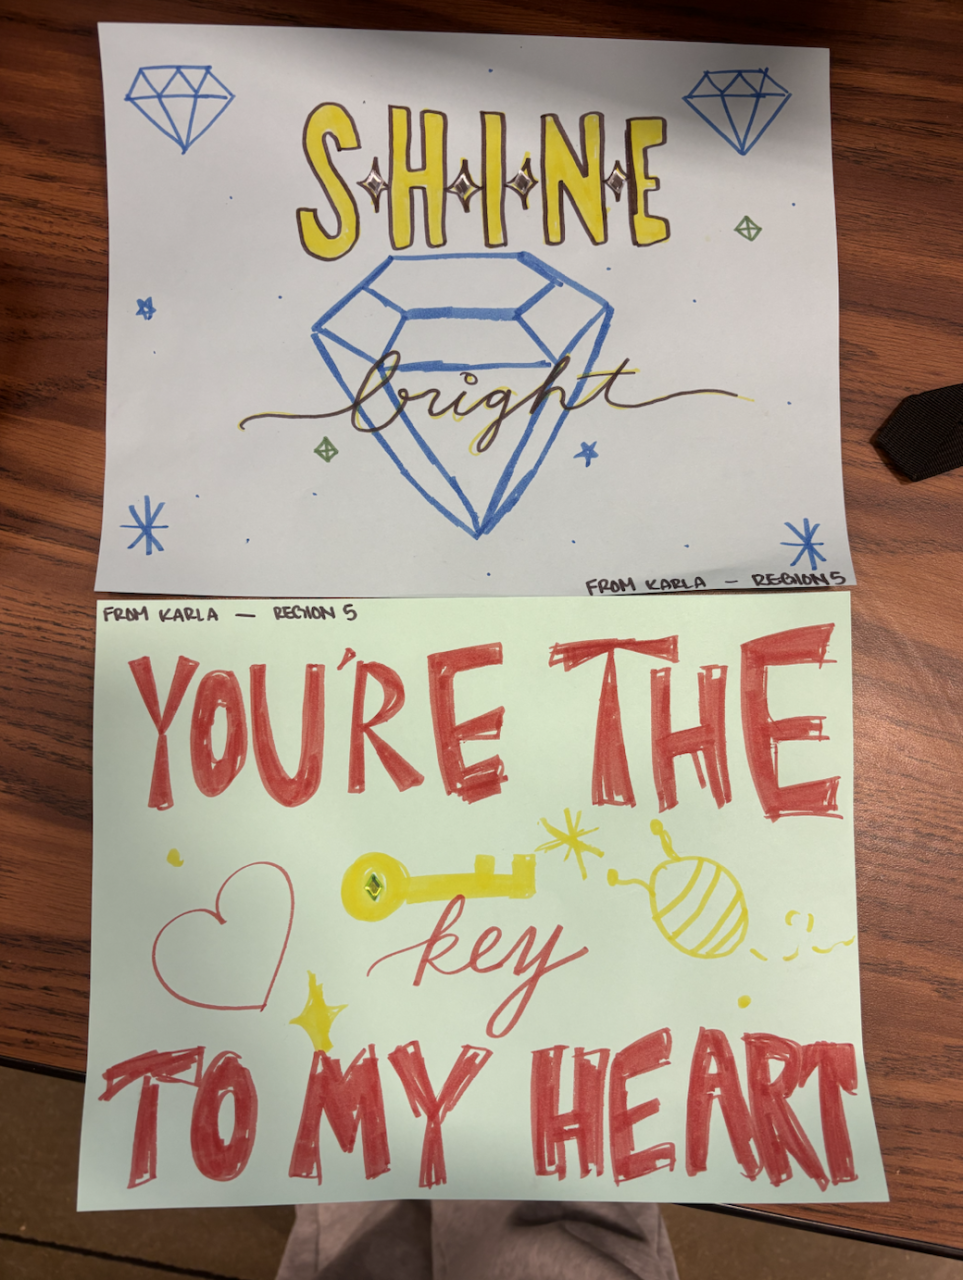 SHINE
bright
FROM KARLA — REGION 5
FROM KARLA — REGION 5
YOU'RE THE
key
TO MY HEART